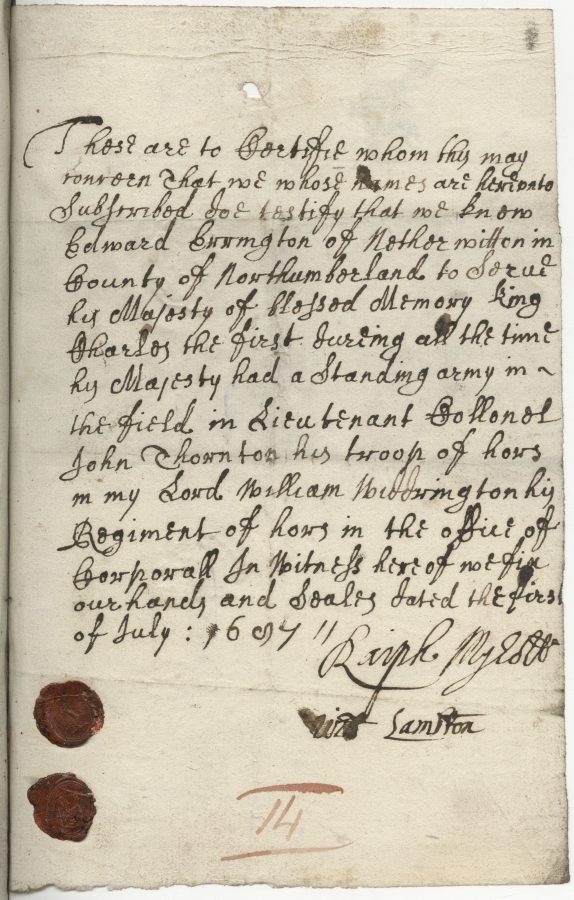 These are to Certifie whom this may
concern That we whose names are hereunto
Subscribed doe testify that we knew
Edward Errington of Netherwitton in
County of Northumberland to Serve
his Majesty of blessed Memory King
Charles the first dureing all the time
his Majesty had a Standing army in ~
the field in Lieutenant Collonel
John Thornton his troop of hors
in my Lord William Widdrington his
Regiment of hors in the office of
Corporall In Witness hereof we fix
our hands and Seales dated the first
of July : 1687 //
Ralph
Lambton
14